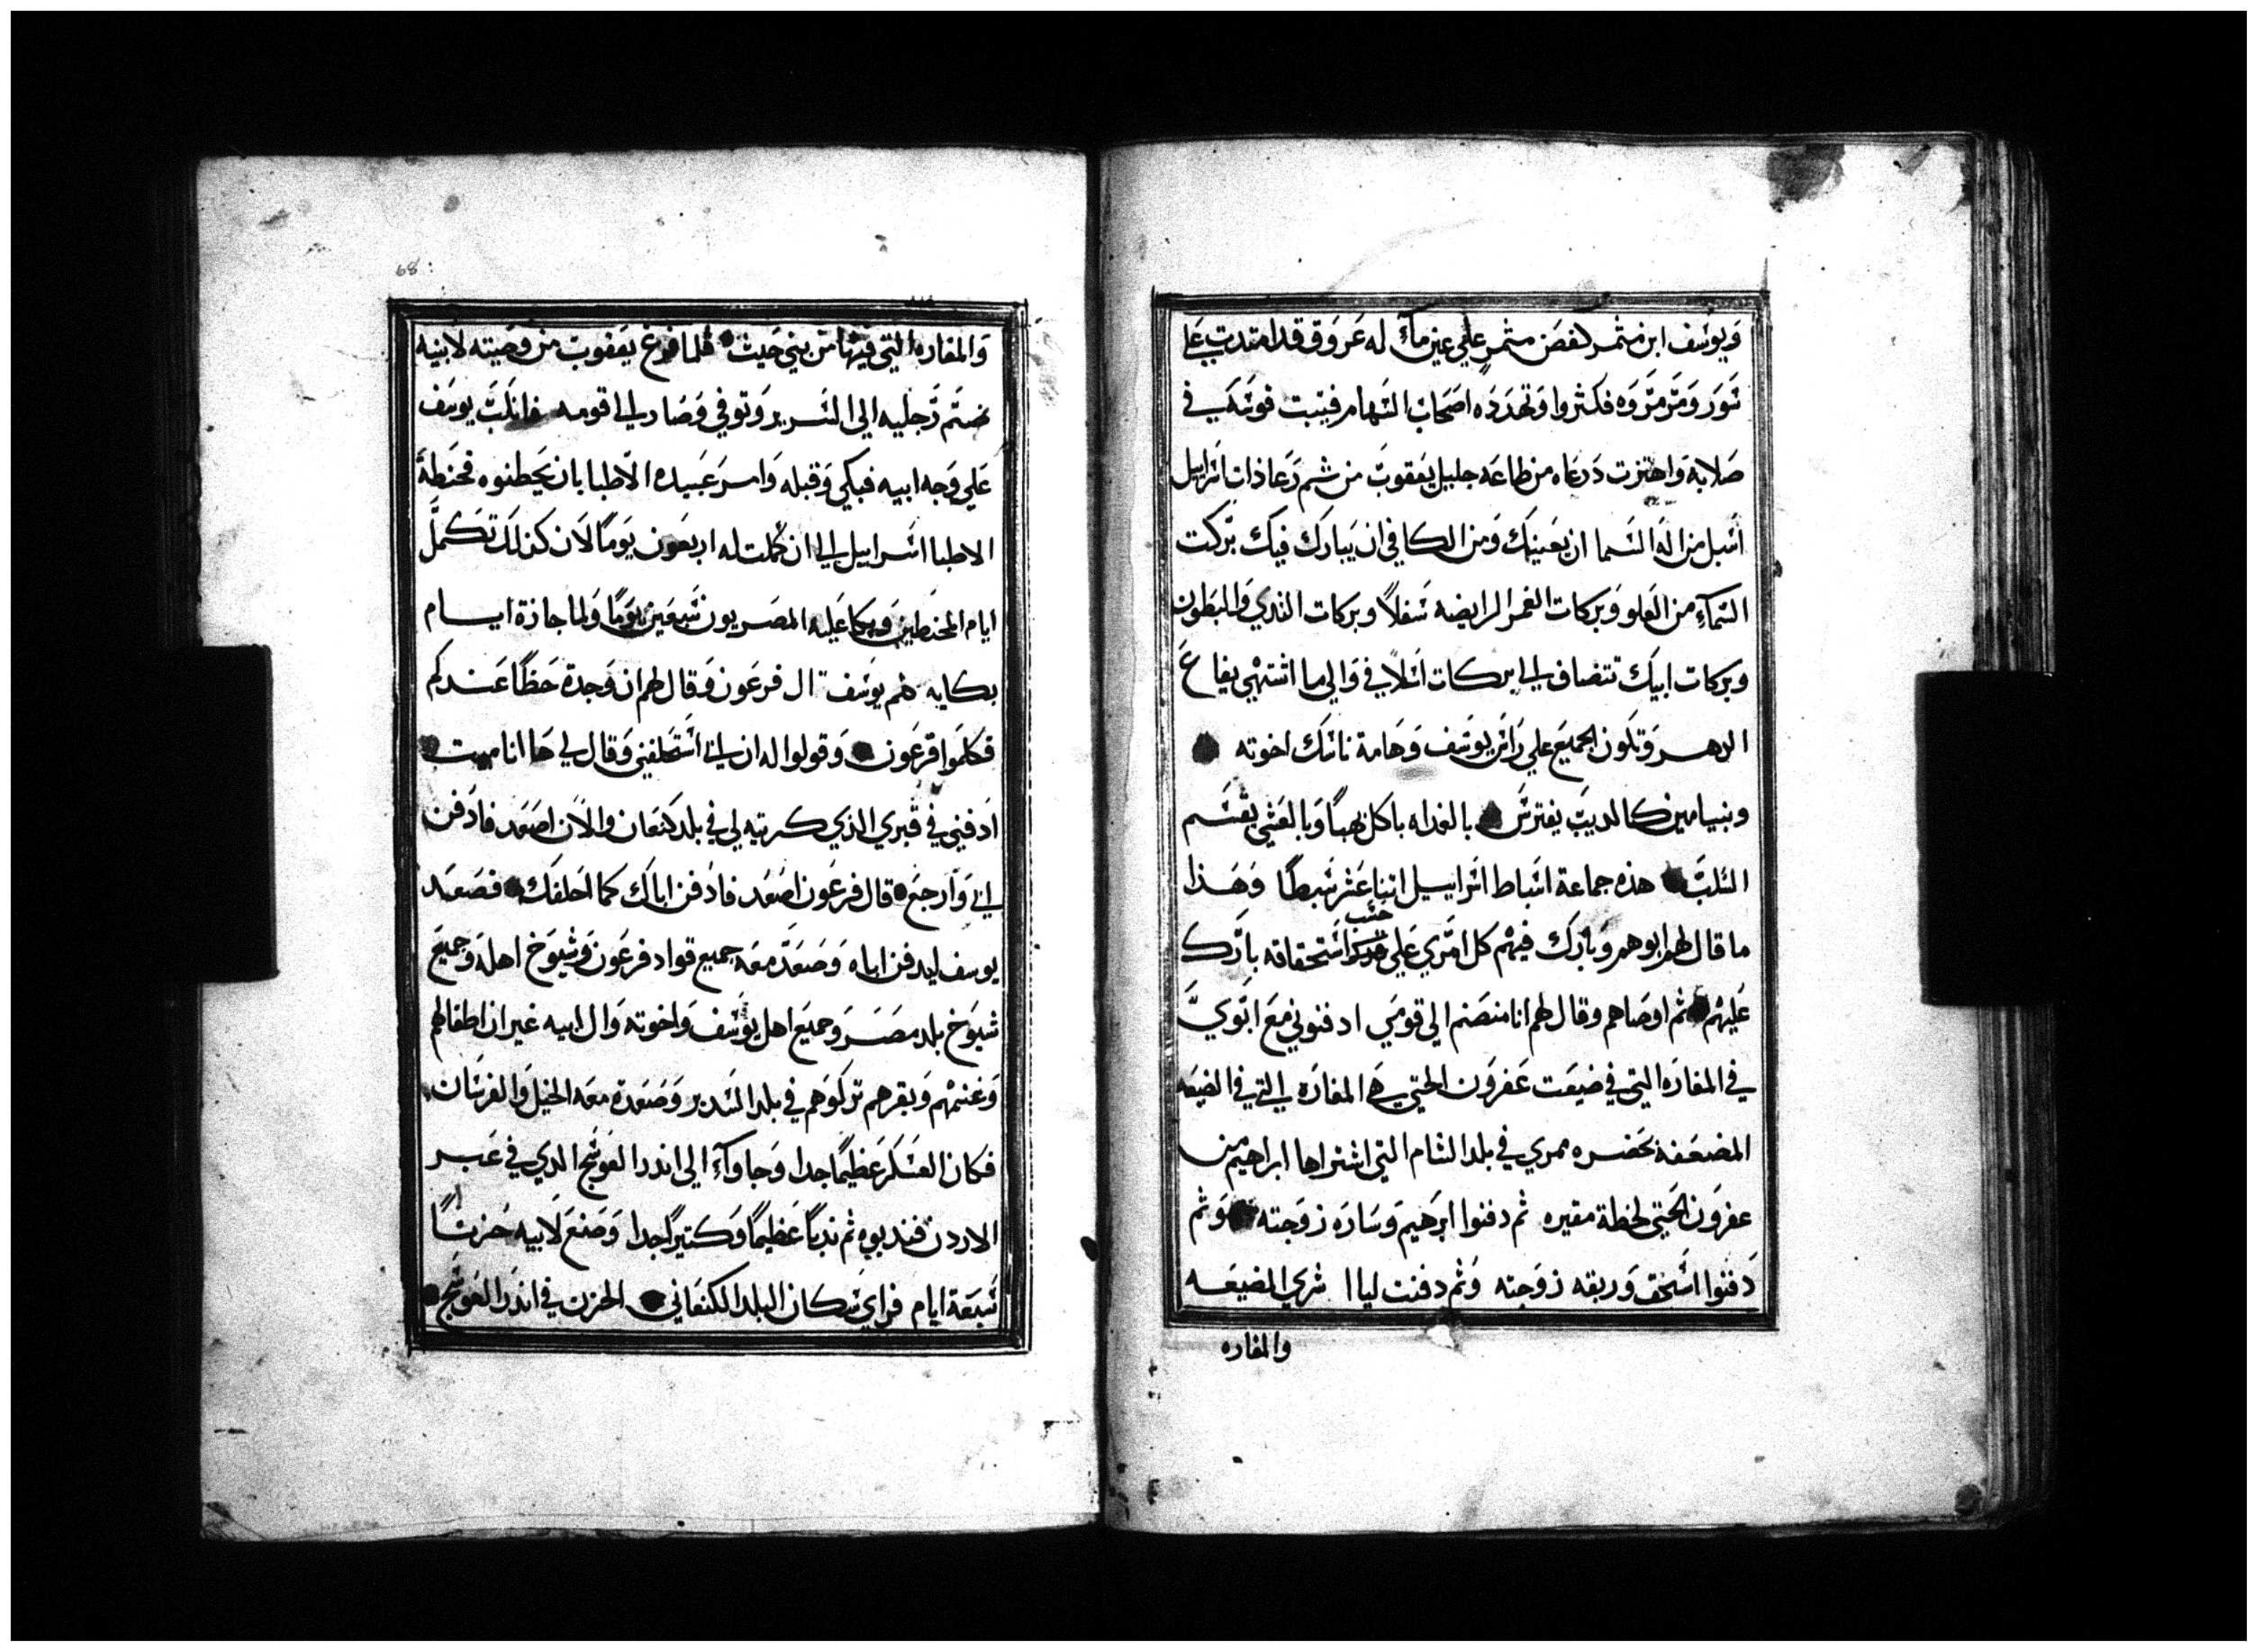 ويوسف ابن مثمر كغصن مثمر علي عين مآء له عروق قد امتدت علي
سور ومرمروه فكثروا وتهدده اصحاب السهام فيثبت قوسه في
صلابه واهتزت درعاه من طاعه جليل يعقوب من ثم رعا ذات اسراييل
اسل من اله السما ان يعينك ومن الكافي ان يبارك فيك بركت
السمآء من العلو وبركات الغمر الرابضه سفلاً وبركات الثدي والبطون
وبركات ابيك تتضاف الي بركات اسلافي والي ما اشتهي يفاع
الدهر وتكون الجميع علي راس يوسف وهامة ناسك اخوته
وبنيامين كالديب يفترس بالغداه ياكل نهباً وبالعشي يقسم
السلب هذه جماعة اسباط اسراييل اثنا عشر سبطاً وهذا
ما قال لهم ابوهم وبارك فيهم كل امري علي حسب استحقاقه بارك
عليهم ثم اوصاهم وقال لهم انا منضم الي قومي ادفنوني مع ابوي
في المغاره التي في ضيعت عفرون الحتي هي المغاره التي في الضيعه
المضعفه بحضره ممري في بلد الشام التي اشتراها ابراهيم من
عفرون الحتي لخطة مقبره ثم دفنوا ابرهيم وساره زوجته وثم
دفنوا اسحق وربقه زوجته وثم دفنت ليا ا شري المضيعه
والمغاره
68
والمغاره التي فيها من بني حيث فلما فرغ يعقوب من وصيته لابنيه
ضم رجليه الي السرير وتوفي وصار الي اقومه فانكب يوسف
علي وجه ابيه فبكي وقبله وامر عبيده الاطبا بان يحطنوه فحنطة
الاطبا اسراييل الي ان كملت له اربعون يوماً لان كذلك تكمل
ايام المحنطين وبكا عليه المصريون سبعين يوماً ولما جازة ايام
بكايه هم يوسف ال فرعون وقال لهم ان وجدة حظاً عندكم
فكلموا فرعون وقولوا له ان ابي استحلفني وقال لي ها انا ميت
ادفني في قبري الذي كريته لي في بلد كنعان والان اصعد فادفن
ابي وارجع قال فرعون اصعد فادفن اباك كما احلفك فصعد
يوسف ليدفن اباه وصعد معه جميع قواد فرعون وشيوخ اهله وجميع
شيوخ بلد مصر وجميع اهل يوسف واخوته وال ابيه غير ان اطفالهم
وغنمهم وبقرهم تركوهم في بلد السدير وصعدة معه الخيل والفرسان
فكان العسكر عظيماً جدا وجاوآء الي اندر العوسج الدي في عبر
الاردن فندبوه ثم ندباً عظيماً وكتيراً جدا وصنع لابيه حزناً
سبعة ايام فراي سكان البلد الكنعاني الحزن في اندر العوسج